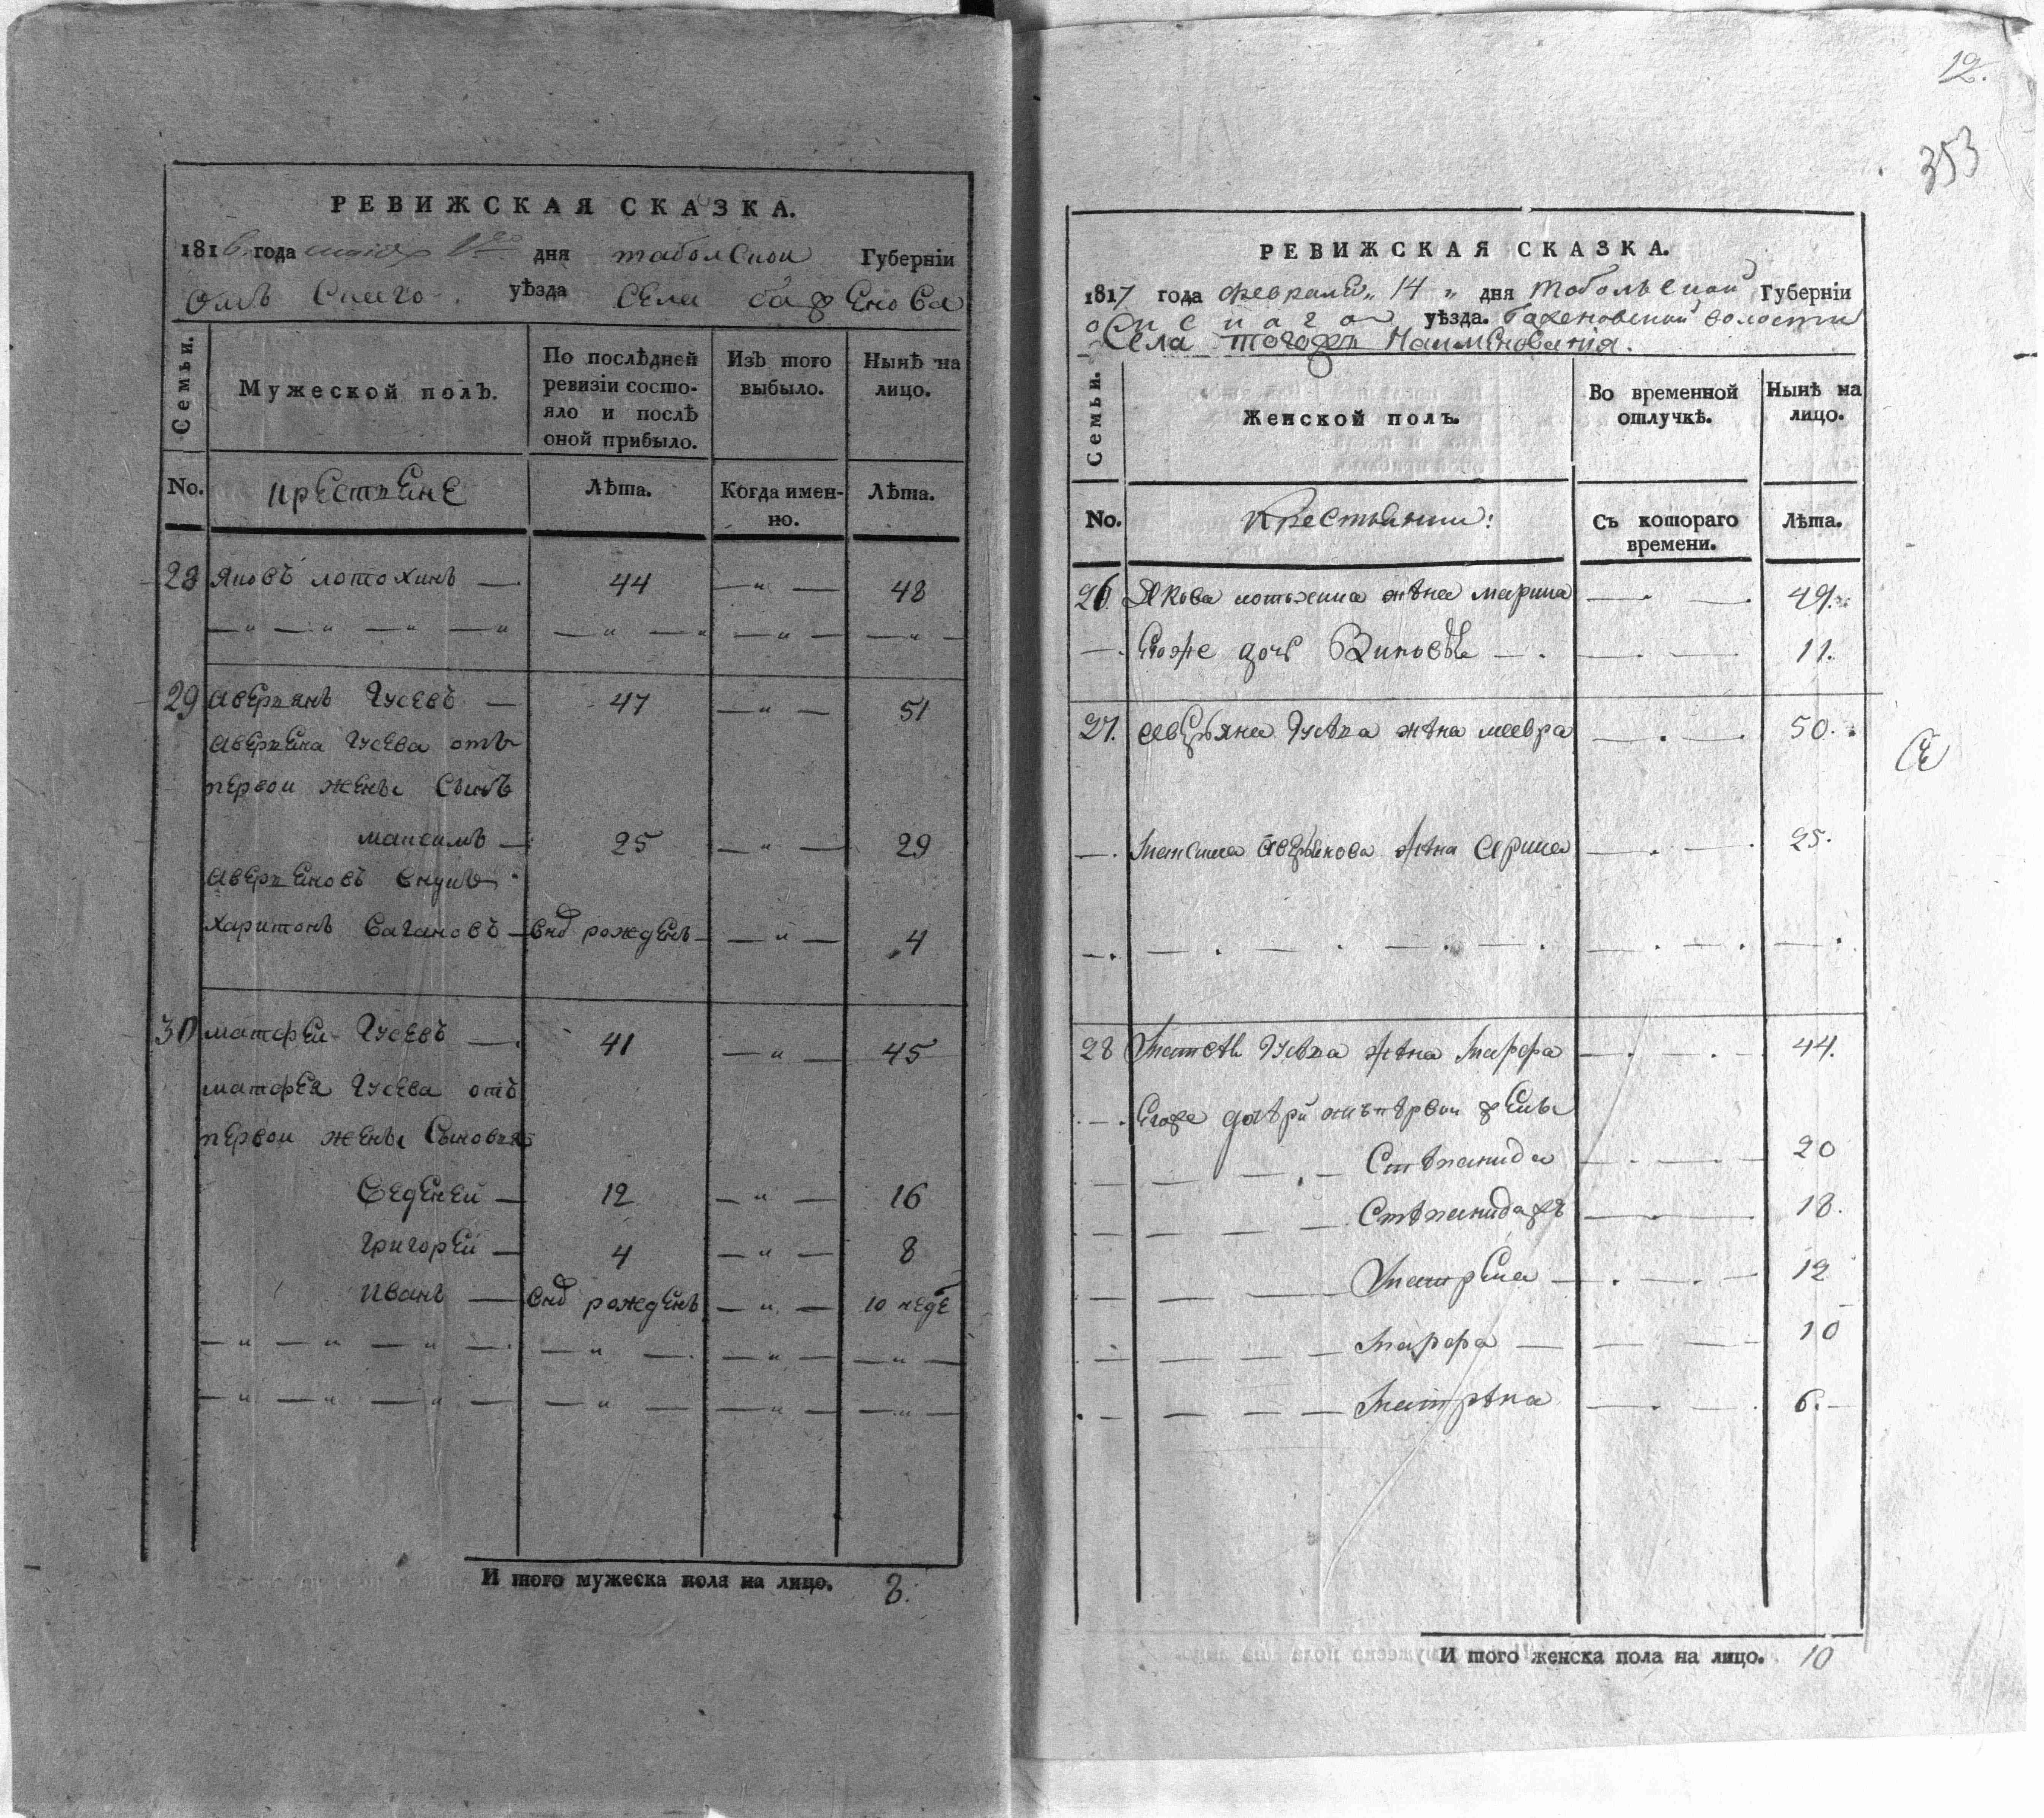 РЕВИЖСКАЯ СКАЗКА.
1816 года маия 1го дня таболской Губерніи
Омъ Скаго уѣзда Села баженова
Семьи. Мужеской полъ. По послѣдней ревизіи состояло и послѣ оной прибыло. Изъ того выбыло. Нынѣ на лицо.
No. крестьѣне Лѣта. Когда именно. Лѣта.
28 Яковъ лотохинъ — 44 — " — 48
29 Аверьянъ Гусевъ — 47 — " — 51
Аверьена Гусева отъ
первои жены Сынъ
максимъ — 25 — " — 29
Аверьеновъ внукъ
Харитонъ Вагановъ — внд рожденъ — " — 4
30 матфеи Гусевъ — 41 — " — 45
матфея Гусева отъ
первои жены Сыновья
Седеней — 12 — " — 16
Григорей — 4 — " — 8
Иванъ — внд рожденъ — " — 10 неде
И того мужеска пола на лицо. 8.
12.
353
РЕВИЖСКАЯ СКАЗКА.
1817 года февраля „ 14 „ дня Тобольской Губерніи
омскаго уѣзда. Баженовской волости
Села тогожъ Наименованія.
Семьи. Женской полъ. Во временной отлучкѣ. Нынѣ на лицо.
No. Крестьянки: Съ котораго времени. Лѣта.
26. Якова лотохина жѣна марина 49.
Егоже дочь 11.
27. Аверьяна Гусѣва жѣна мавра 50.
Максима Аверьянова жѣна Арина 25.
28 Матвѣя Гусѣва жѣна Марфа 44.
Егоже дочѣри отъ пѣрвои жены
Стѣпанида 20
Стѣпанидажъ 18.
Матрена 12
Марфа 10
Матрѣна 6.
И того женска пола на лицо. 10